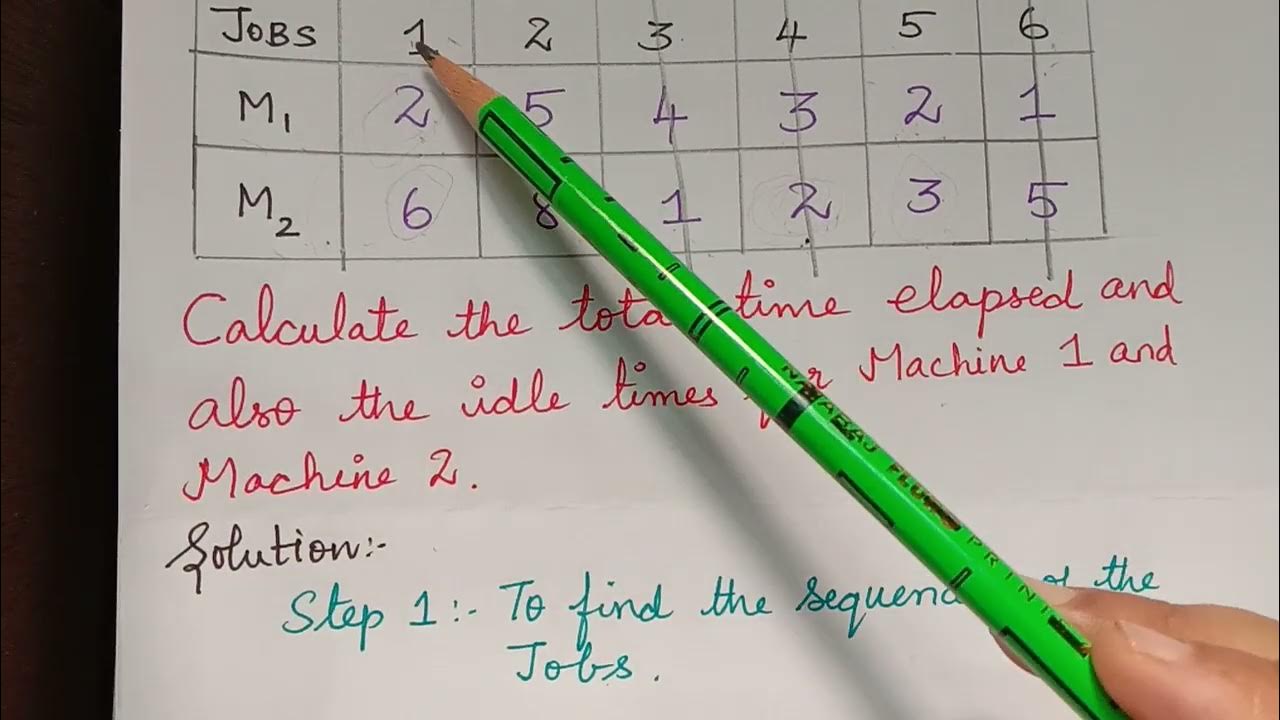 JOBS 1 2 3 4 5 6
M1 2 5 4 3 2 1
M2 6 8 1 2 3 5
Calculate the total time elapsed and
also the idle times for Machine 1 and
Machine 2.
Solution:-
Step 1:- To find the sequence of the
Jobs.